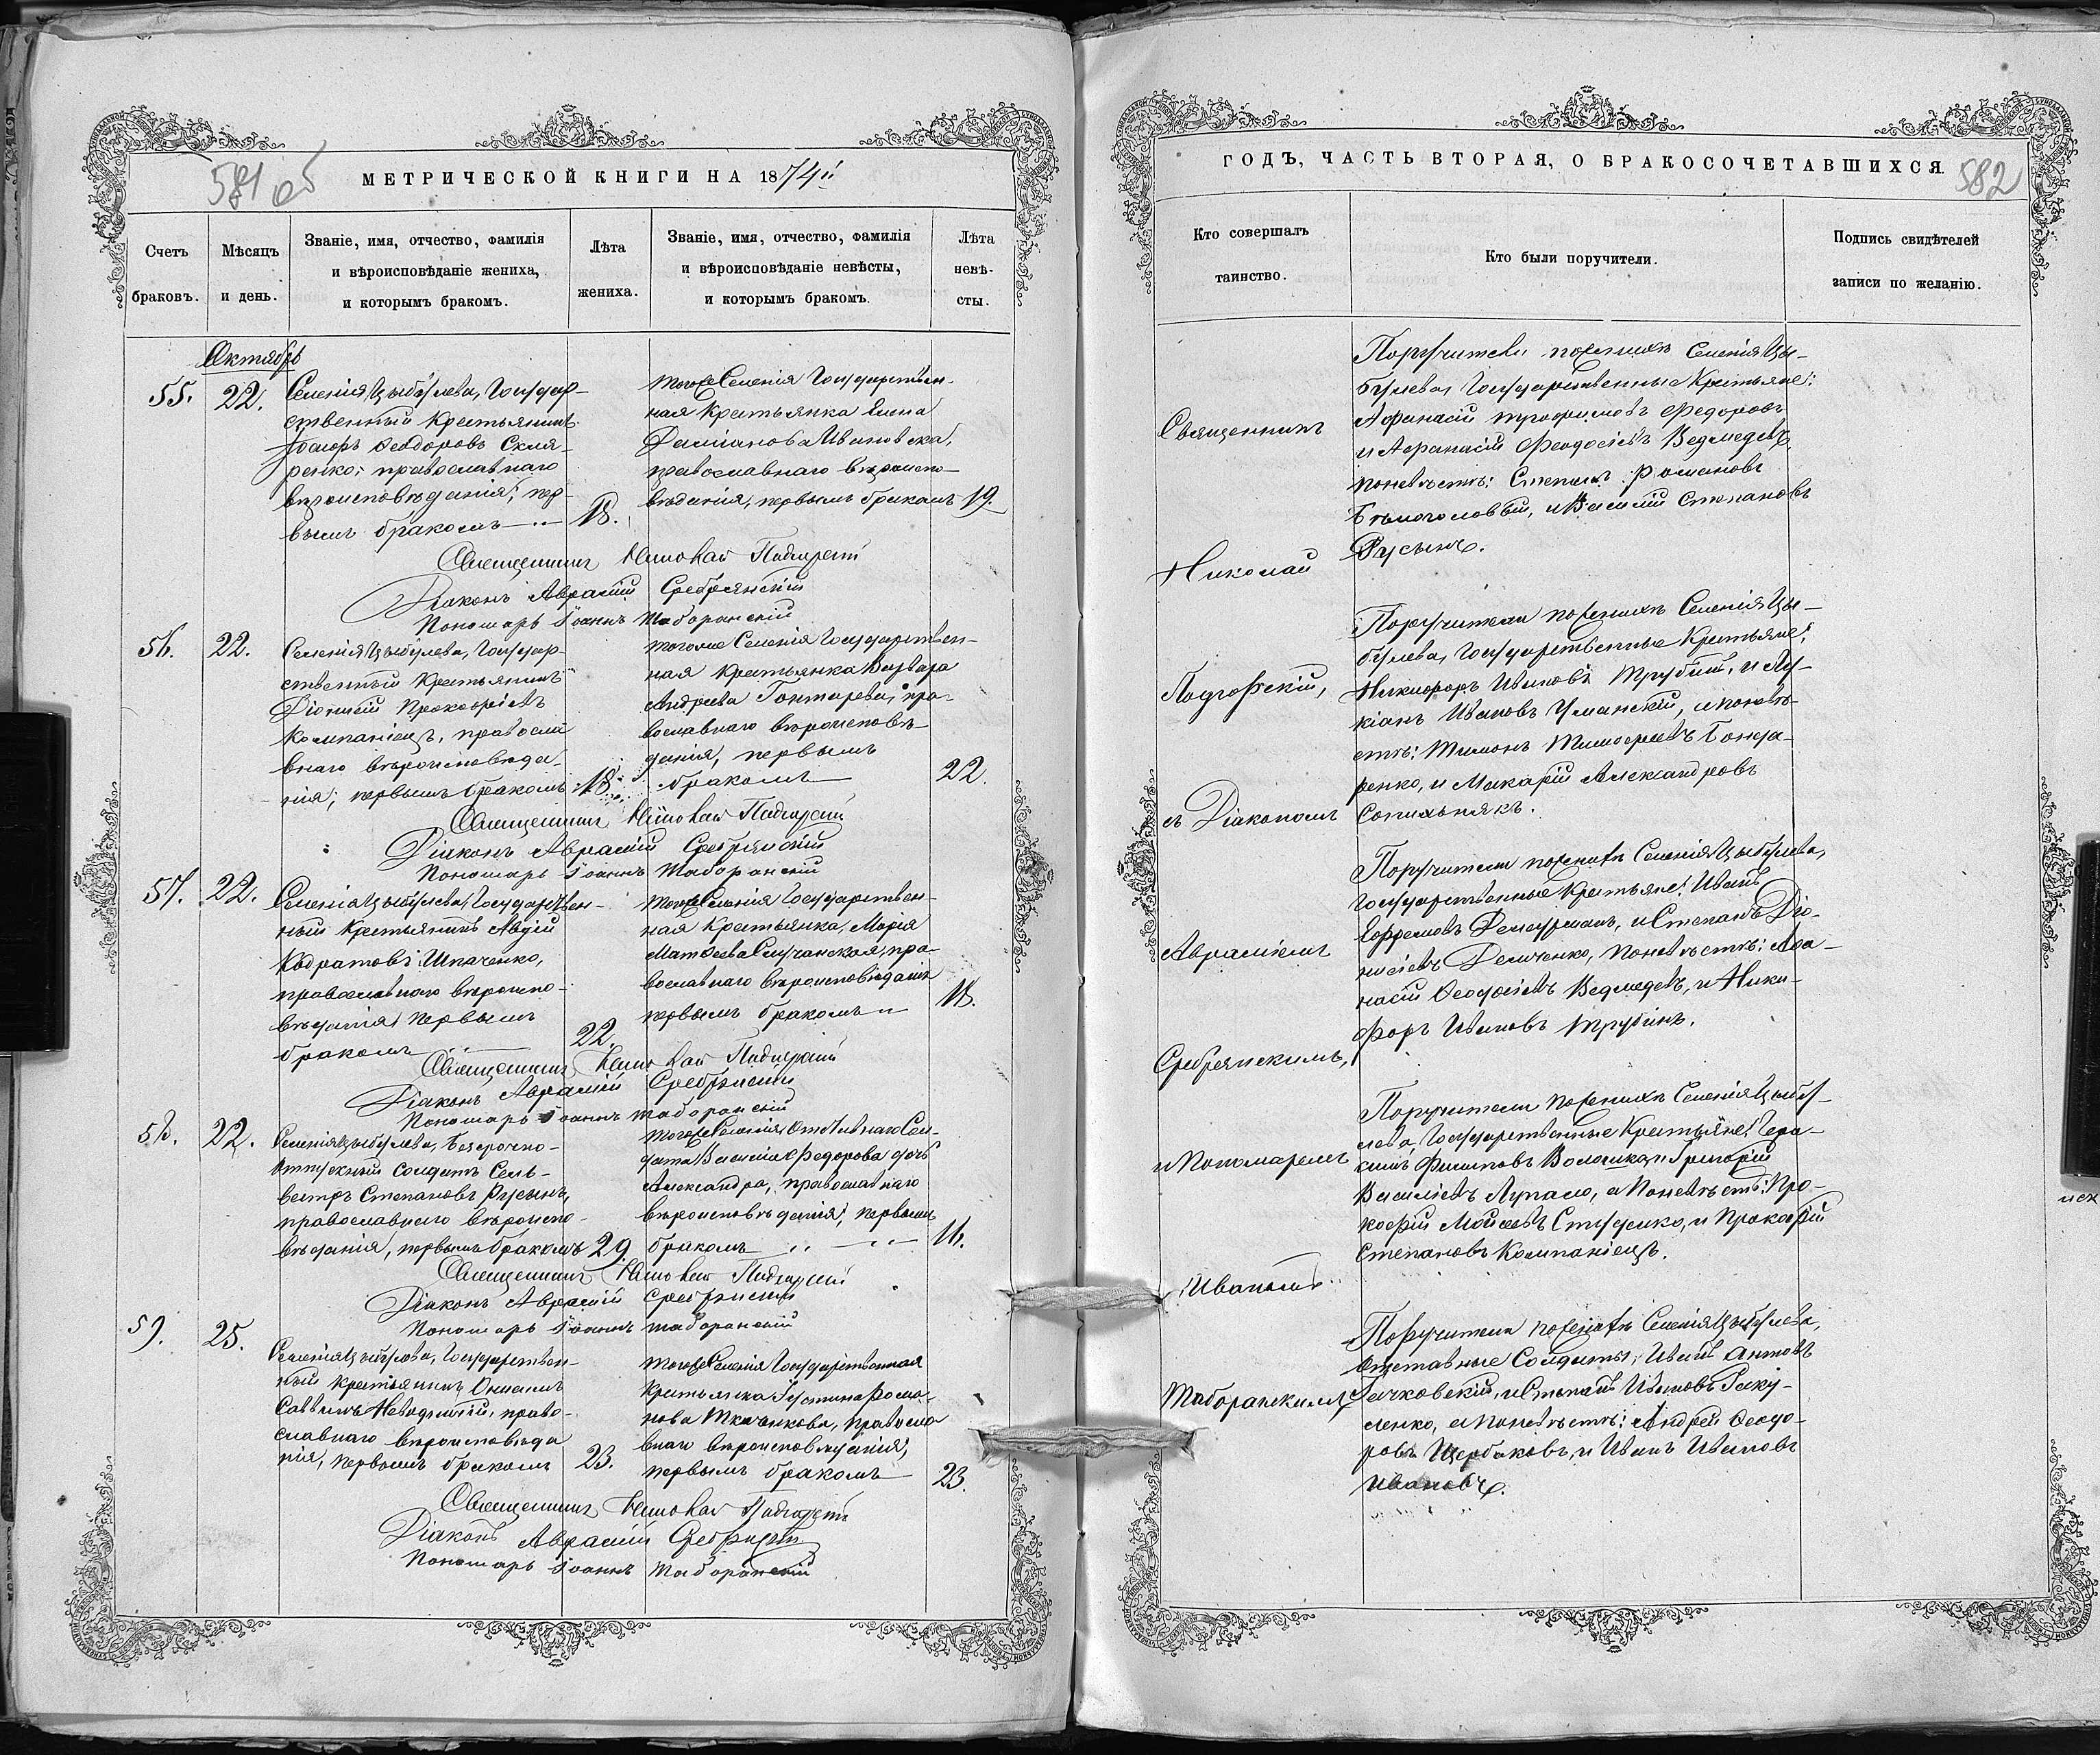 581 об
МЕТРИЧЕСКОЙ КНИГИ НА 1874й
Счетъ браковъ.
Мѣсяцъ и день.
Званіе, имя, отчество, фамилія
и вѣроисповѣданіе жениха,
и которымъ бракомъ.
Лѣта жениха.
Званіе, имя, отчество, фамилія
и вѣроисповѣданіе невѣсты,
и которымъ бракомъ.
Лѣта невѣ-
сты.
Октябрь
55. 22.
Селенія Цыбулева, Государ-
ственный Крестьянинъ
Ѳеодоровъ Скля-
ренко; православнаго
вѣроисповѣданія; пер-
вымъ бракомъ 18.
тогоже Селенія Государствен-
ная Крестьянка Елена
Даміанова Ивановска,
православнаго вѣроиспо-
вѣданія, первымъ бракомъ 19.
Священникъ Николай
Діаконъ Аврамій Сребрянскій
Пономарь Іоаннъ Таборанскій
56. 22.
Селенія Цыбулева, Государ-
ственный Крестьянинъ
Діонисій Прокофіевъ
Компаніецъ, правосла
внаго вѣроисповѣда-
нія; первымъ бракомъ 18.
тогоже Селенія Государствен-
ная Крестьянка Варвара
Андреева Гонтарева, пра-
вославнаго вѣроисповѣ-
данія, первымъ
бракомъ 22.
Священникъ Николай
Діаконъ Аврамій Сребрянскій
Пономарь Іоаннъ Таборанскій
57. 22.
Селенія Цыбулева, Государствен-
ный Крестьянинъ Авдій
Кодратовъ Шпаченко,
православнаго вѣроиспо-
вѣданія первымъ
бракомъ 22.
тогоже Селенія Государствен-
ная Крестьянка, Марія
Матѳеева Случанская, пра-
вославнаго вѣроисповѣданія
первымъ бракомъ 18.
Священникъ Николай
Діаконъ Аврамій Сребрянскій
Пономарь Іоаннъ Таборанскій
58. 22.
Селенія Цыбулева, Безсрочно-
отпускный Солдатъ Сель-
вестръ Степановъ Русынъ,
православнаго вѣроиспо-
вѣданія, первымъ бракомъ 29.
тогоже Селенія Отставнаго Сол-
дата Василія Федорова дочь
Александра, православнаго
вѣроисповѣданія, первымъ
бракомъ 16.
Священникъ Николай
Діаконъ Аврамій Сребрянскій
Пономарь Іоаннъ Таборанскій
59. 25.
Селенія Цыбулева, Государствен-
ный Крестьянинъ
Саввинъ право-
славнаго вѣроисповѣда
нія, первымъ бракомъ 23.
тогоже Селенія Государственная
Крестьянка Іустина Рома-
нова Ткаченкова, правосла
внаго вѣроисповѣданія,
первымъ бракомъ 23.
Священникъ Николай
Діаконъ Аврамій
Пономарь Іоаннъ Таборанскій
582
ГОДЪ, ЧАСТЬ ВТОРАЯ, О БРАКОСОЧЕТАВШИХСЯ.
Кто совершалъ
таинство.
Кто были поручители.
Подпись свидѣтелей
записи по желанію.
Священникъ
Николай
Подгорскій,
съ Діакономъ
Авраміемъ
Сребрянскимъ,
и Пономаремъ
Иваномъ
Таборанскимъ
Поручители по женихѣ Селенія Цы-
булева, Государственные Крестьяне:
Афанасій Трофимовъ Федоровъ
и Афанасій Феодосіевъ Ведмедевъ,
по невѣстѣ: Стефанъ Романовъ
Бѣлоголовый, и Василій Степановъ
Русынъ.
Поручители по женихѣ Селенія Цы-
булева, Государственные Крестьяне:
Никифоръ Ивановъ Трубинъ, и Лу-
кіанъ Ивановъ Уманскій, и по невѣ-
стѣ: Тимонъ Тимофеевъ Бонда-
ренко, и Макарій Александровъ
Сопильнякъ.
Поручители по женихѣ Селенія Цыбулева,
Государственные Крестьяне: Иванъ
Ефремовъ и Степанъ Діо-
нисіевъ Демченко, по невѣстѣ: Афа-
насій Ѳеодосіевъ Ведмедевъ, и Ники-
форъ Ивановъ Трубинъ.
Поручители по женихѣ Селенія Цыбу-
лева, Государственные Крестьяне: Гера-
симъ Филиповъ Волошка, и Григорій
Василіевъ Лупало, а по невѣстѣ: Про-
кофій Моисеевъ Студенко, и Прокофій
Степановъ Компаніецъ.
Поручители по женихѣ Селенія Цыбулева,
Отставные Солдаты: Иванъ Антовъ
и Степанъ Ивановъ
а по невѣстѣ: Андрей Ѳеодо-
ровъ Щербаковъ, и Иванъ Ивановъ
Ивановъ.